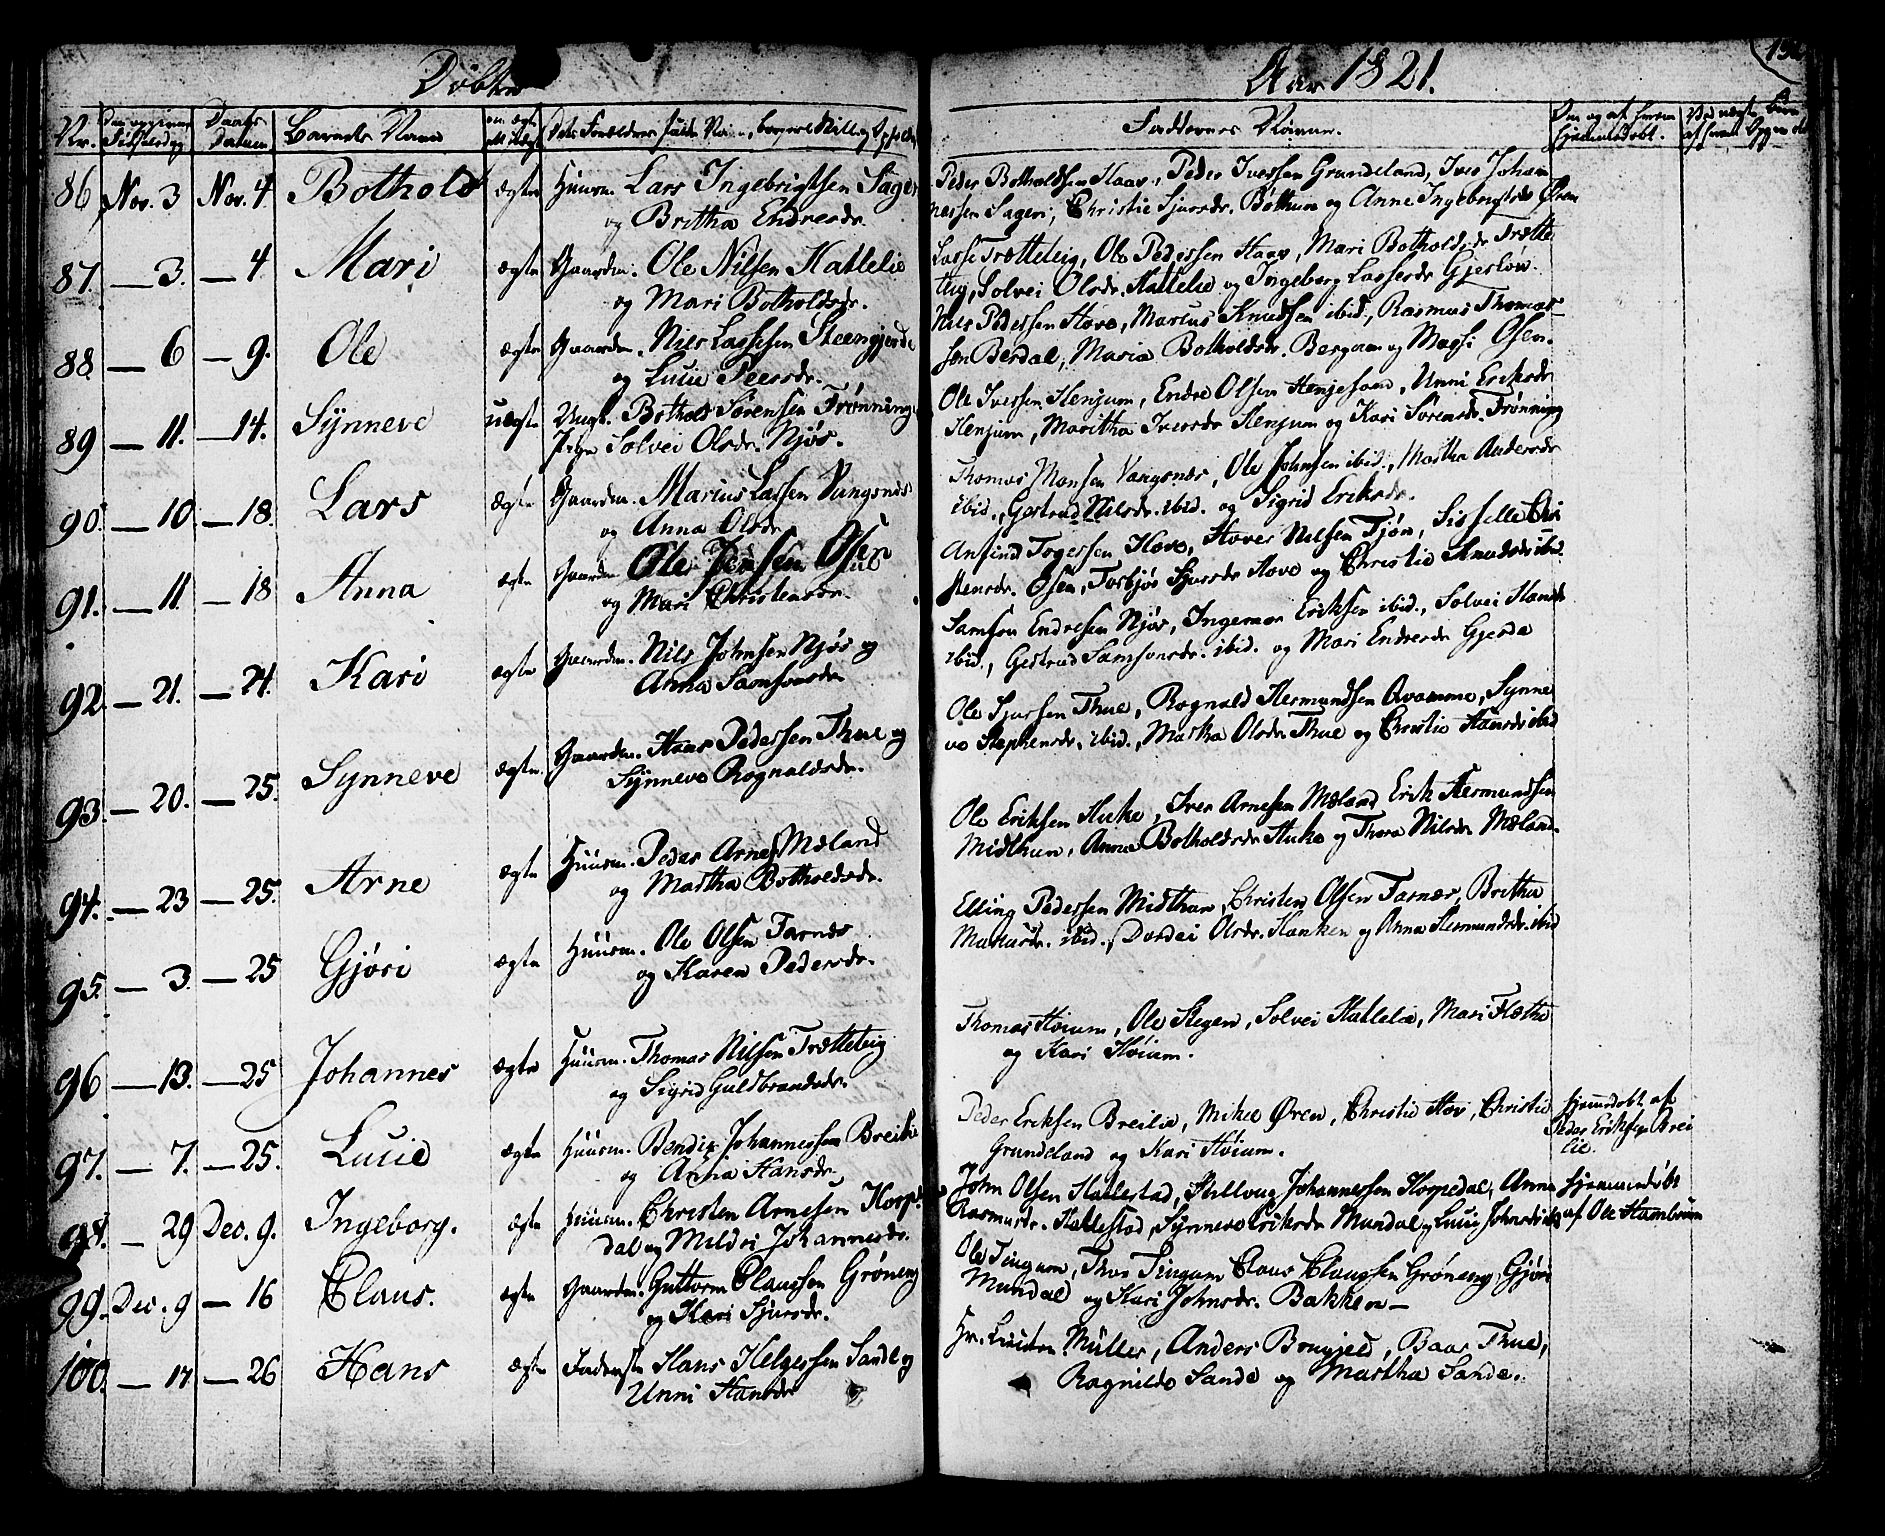 Døbte
Aar 1821.
Nr.
Daabs Datum
Barnets Navn
Faddernes Navne.
86 Nov. 3 Nov. 4 Bothold ægte Huusm. Lars Ingebrigtsen Sageri
og Brittha Endresdr.
Peder Botholdsen Haav, Peder Iversen Grundeland, Iver Johan
nessen Sageri, Christie Sjursdr. Bøthun og Anne Ingebrigtsdr Øren
87. — 3. — 4 Mari ægte Gaardm. Ole Nilsen Hallelie
og Mari Botholdsdr.
Lasse Trætteteig, Ole Pedersen Haav, Mari Botholdsdr Trætte
teig, Solvei Olsdr. Hallelie og Ingeborg Lassesdr Gjesløv.
88. — 6 — 9. Ole ægte Gaardm. Nils Lassesen Steengjerde
og Lucie Peersdr.
Nils Pedersen Hove, Marcus Knudsen ibid, Rasmus Thomas
sen Berdal, Maria Botholdsdr. Bergum og Magsi Osen.
89 — 11. — 14. Synneve uægte Ungk. Bothold Sørensen Frønning
Pige Solvei Olsdr. Njøs.
Ole Iversen Henjum, Endre Olsen Henjesand, Unni Eriksdr
Henjum, Maritha Iversdr Henjum og Kari Sørensdr. Frønning
90. — 10. — 18. Lars ægte Gaardm. Marius Lassen Vangsnes
og Anna Olsdr
Thomas Monsen Vangsnes, Ole Johnsen ibid., Martha Andersdr
ibid., Gertrud Nilsdr. ibid. og Sigrid Eriksdr.
91. — 11. — 18 Anna ægte Gaardm. Ole Jensen Osen
og Mari Christensdr.
Anfind Togersen Hove, Hover Nilsen Tjøn, Sisselle Chri
stensdr. Osen, Torbjør Sjursdr Hove og Christie Knudsdr ibid.
92 — 21. — 24. Kari ægte Gaardm. Nils Johnsen Njøs og
Anna Samsonsdr
Samson Endresen Njøs, Ingemar Eriksen ibid., Solvei Hansdr
ibid., Gertrud Samsonsdr. ibid. og Mari Endresdr Gjerde
93. — 20. — 25. Synneve ægte Gaardm. Hans Pedersen Thue og
Synneve Rognaldsdr.
Ole Sjursen Thue, Rognald Hermundsen Qvamme, Synne
ve Stephensdr. ibid., Martha Olsdr Thue og Christie Hansdr ibid
94. — 23 — 25. Arne ægte Huusm. Peder Arnes. Mæland
og Martha Botholdsdr.
Ole Eriksen Huke, Iver Arnesen Mæland Erik Hermundsen
Midthun, Anna Botholdsdr Huke og Thora Nilsdr Mæland.
95. — 3. — 25 Gjøri ægte Huusm. Ole Olsen Farnes
og Karen Pedersdr.
Elling Pedersen Midthun, Christen Olsen Farnes, Brittha
Mariusdr. ibid., Dordei Olsdr. Hanken og Anna Hermundsdr. ibid
96 — 13. — 25 Johannes ægte Huusm. Thomas Nilsen Trætteteig
og Sigrid Guldbrandsdr.
Thomas Høium, Ole Stegen, Solvei Hallelie, Mari Fløthe
og Kari Høium.
97. — 7. — 25. Lucie ægte Huusm. Bendix Johannessen Breilie
og Anna Hansdr.
Peder Eriksen Breilie, Mikel Øren, Christie Hov, Christie
Grundeland og Kari Høium.
hjemmedøbt af
Peder Eriksen Brei
lie.
98. — 29 Dec. 9. Ingeborg. ægte Huusm. Christen Arnesen Horpe
dal og Mildri Johannesdr.
John Olsen Hallestad, Johannessen Horpedal, Anna
Rasmusdr. Hallestad, Synneve Eriksdr Mundal og Lucie Johnsdr ibid
hjemmedøbt
af Ole Hambrum
99. Dec. 9 — 16 Claus. ægte Gaardm. Guttorm Claussen Grøneng
og Kari Sjursdr.
Ole Tingum, Thor Tingum Claus Claussen Grøneng, Gjøri
Mundal og Kari Johnsdr. Bakken —
100. — 17 — 26 Hans ægte Hans Helgesen Sande og
Unni Hansdr
Hr. Müller, Anders Brugjeld, Baar Thue,
Ragnilde Sande og Martha Sande.